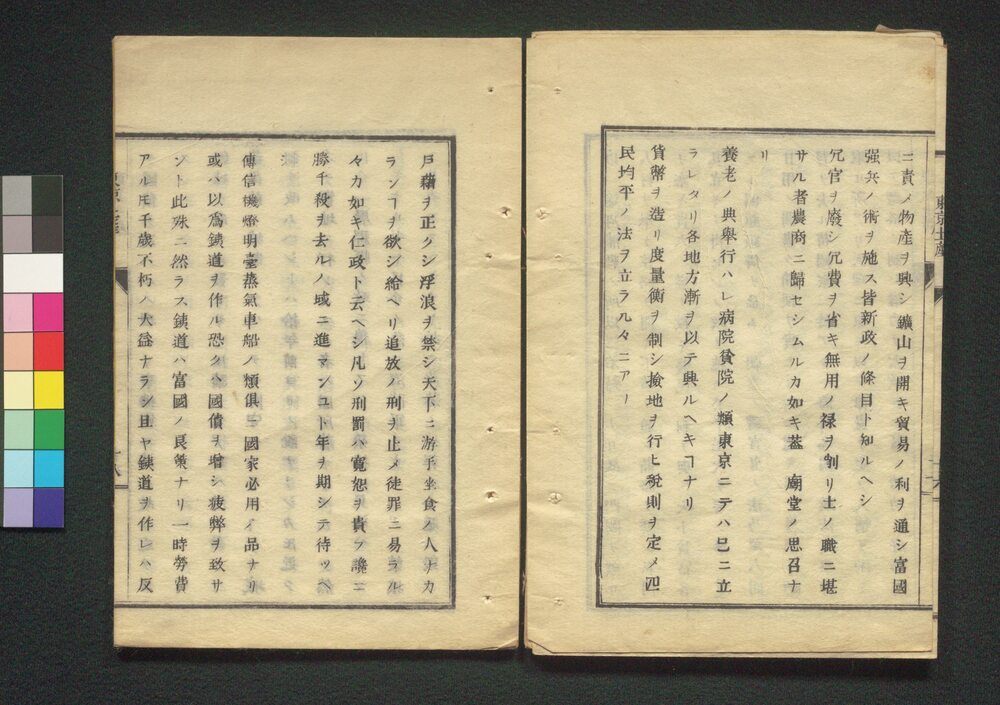 ニ責メ物産ヲ興シ鑛山ヲ開キ貿易ノ利ヲ通シ富國
强兵ノ術ヲ施ス皆新政ノ條目ト知ルヘシ
冗官ヲ廢シ冗費ヲ省キ無用ノ禄ヲ削リ士ノ職ニ堪
サル者農商ニ歸セシムルカ如キ蓋 廟堂ノ思召ナ
リ
養老ノ典舉行ハレ病院貧院ノ類東京ニテハ已ニ立
ラレタリ各地方漸ヲ以テ興ルヘキヿナリ
貨幣ヲ造リ度量衡ヲ制シ撿地ヲ行ヒ税則ヲ定メ四
民均平ノ法ヲ立ラル々ニアリ
戸籍ヲ正クシ浮浪ヲ禁シ天下ニ游手坐食ノ人ナカ
ランヿヲ欲シ給ヘリ追放ノ刑ヲ止メ徒罪ニ易ラル
々カ如キ仁政ト云ヘシ凡ソ刑罰ハ寛恕ヲ貴フ讒ニ
勝千殺ヲ去ルノ域ニ進マンコト年ヲ期シテ待ツヘ
傳信機燈明臺蒸氣車船ノ類俱ニ國家必用ノ品ナリ
或ハ以爲鐵道ヲ作ル恐クハ國債ヲ増シ疲弊ヲ致サ
ント此殊ニ然ラス鐵道ハ富國ノ良策ナリ一時勞費
アルモ千歳不朽ノ大益ナラン且ヤ鐵道ヲ作レハ反
東京土産